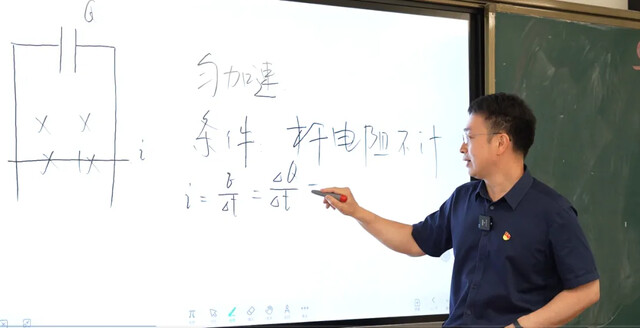 匀加速
条件 杆电阻不计
i
i = q/Δt = ΔQ/Δt =